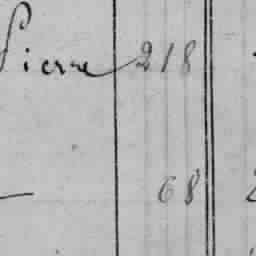 Pierre 218
— 68